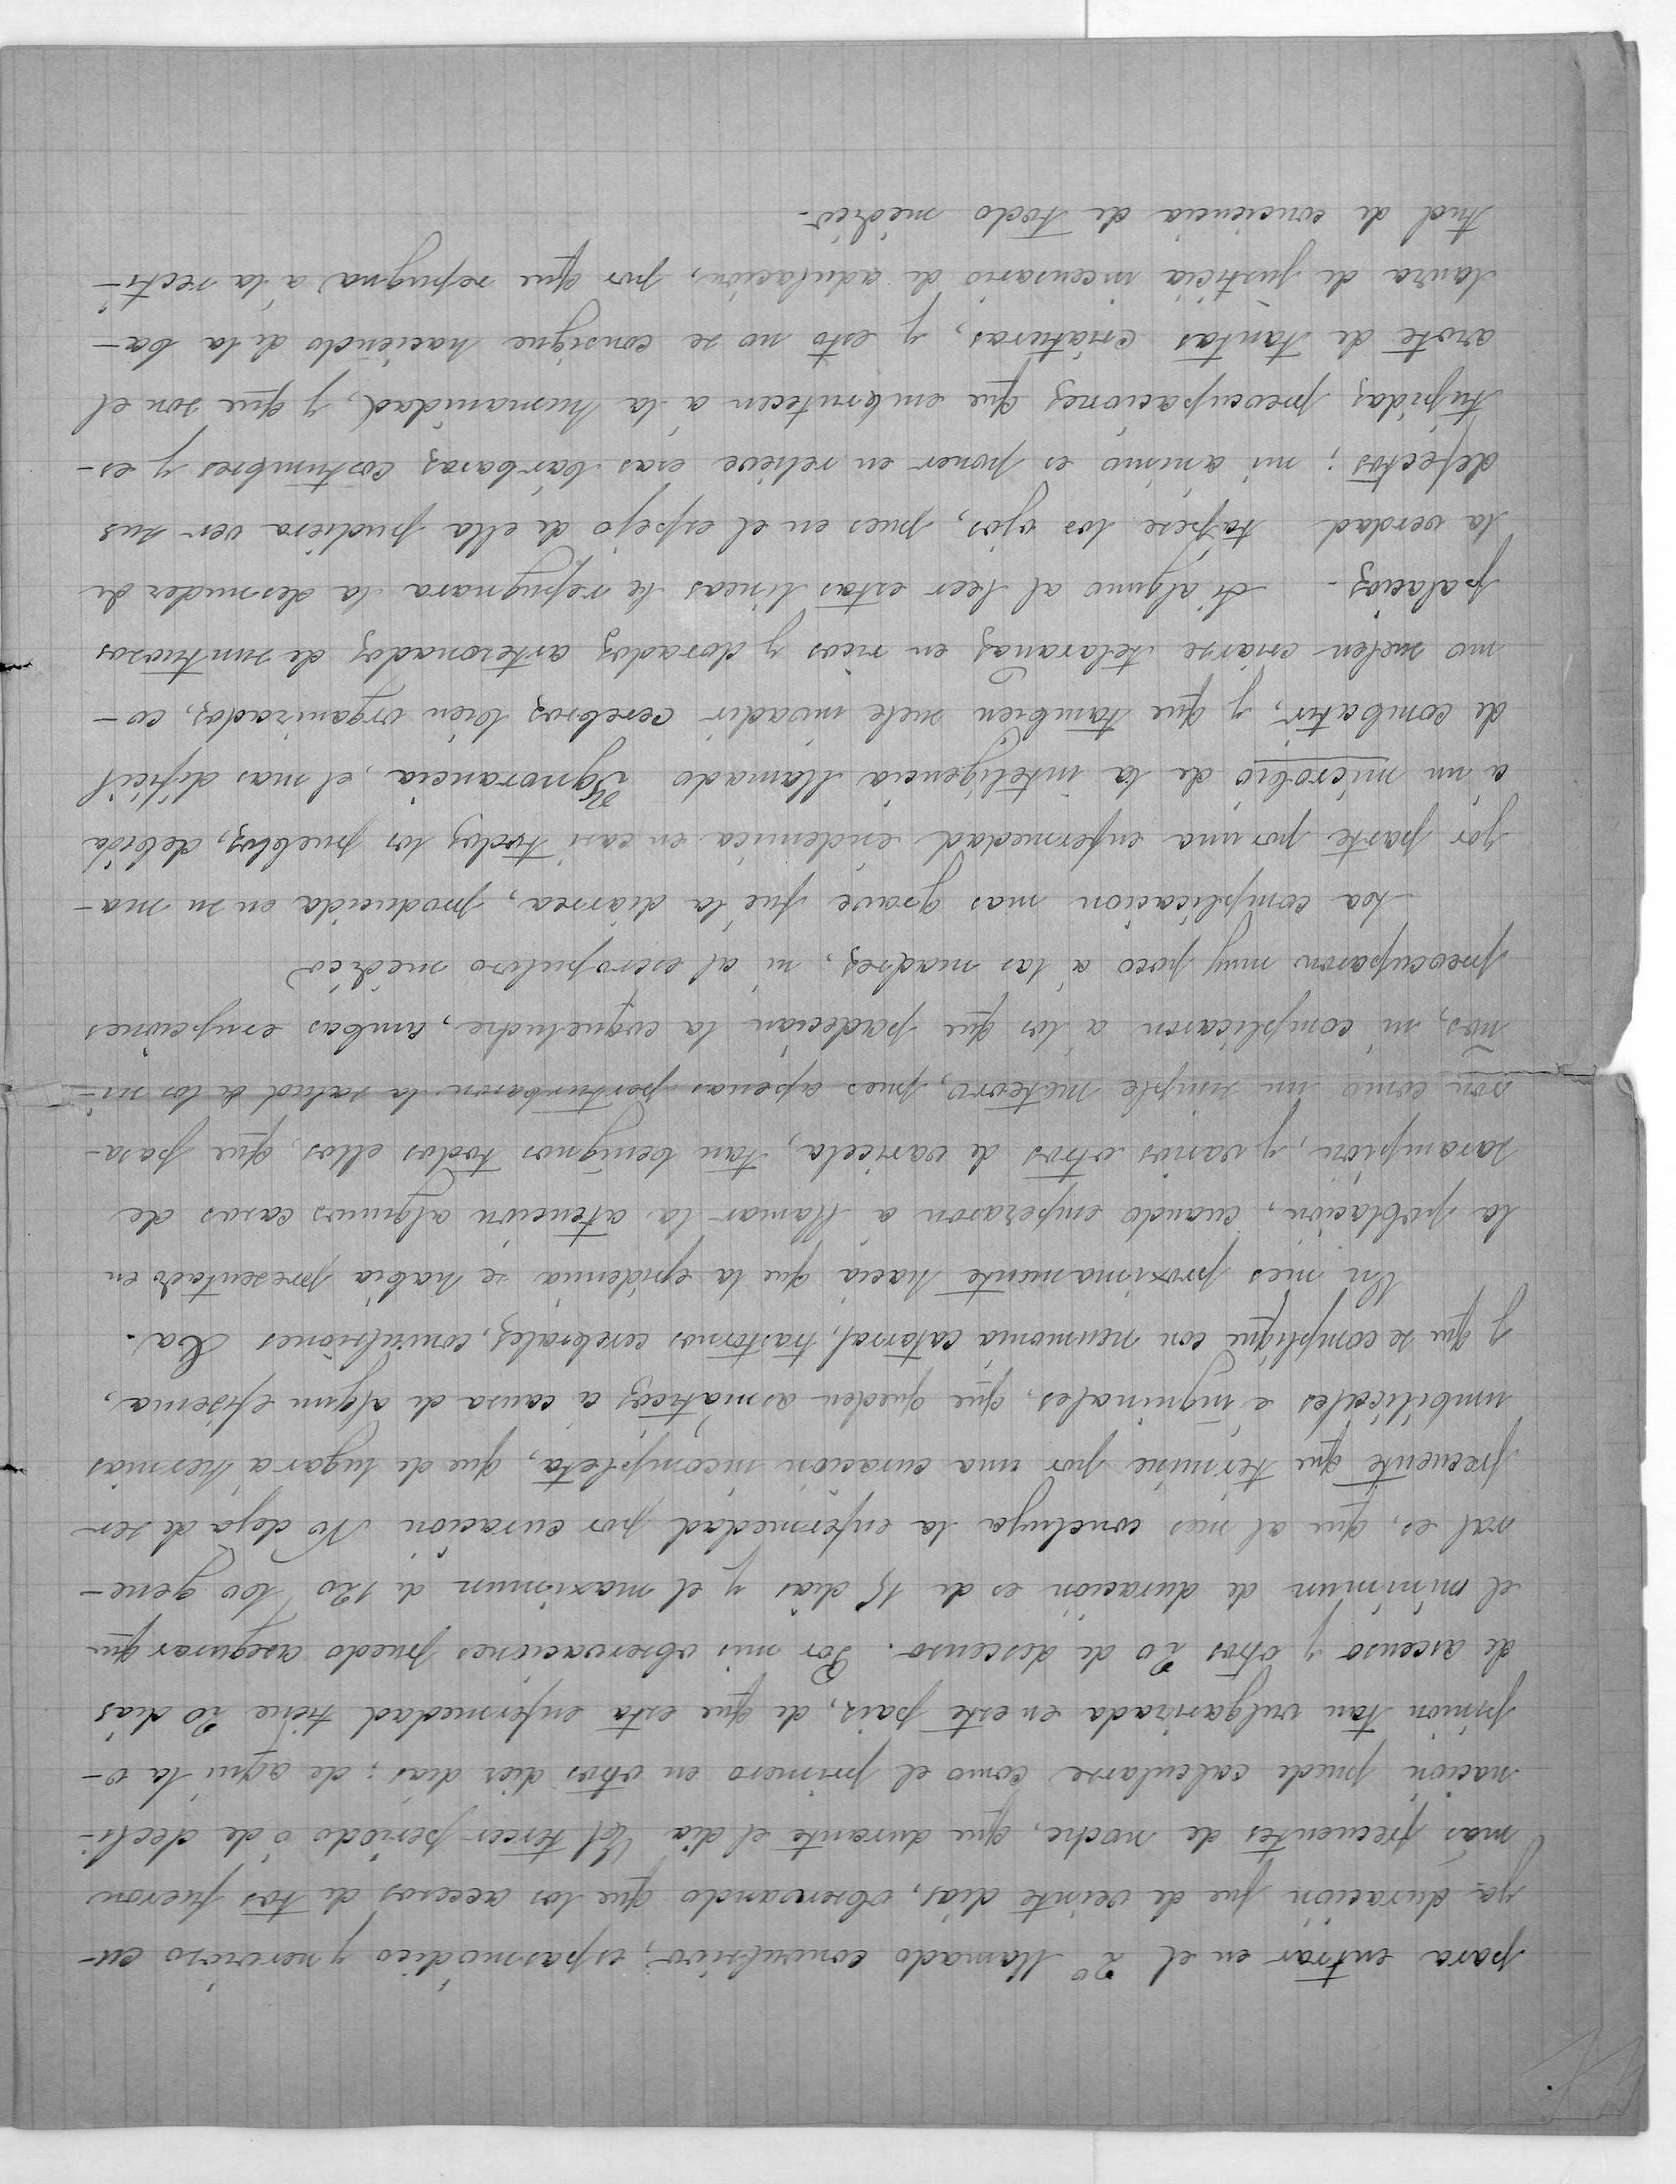 para entrar en el 2º llamado convulsivo, espasmódico y nervioso cu-
ya duración fue de veinte dias, observando que los accesos de tos fueron
más frecuentes de noche, que durante el dia El tercer periódo ó de decli-
nación puede calcularse como el primero en otros diez dias; de aquí la o-
pinión tan vulgarizada en este pais, de que esta enfermedad tiene 20 dias
de ascenso y otros 20 de descenso. Por mis observaciones puedo asegurar que
el minimun de duración es de 15 dias y el maximun de 120 Lo gene-
ral es, que al mes concluya la enfermedad por curación No deja de ser
frecuente que termine por una curación incompleta, que de lugar a hernias
umbilicales e inguinales, que queden asmáticos á causa de algun efisema,
y que se complique con neumonia catarral, trastornos cerebrales, convulsiones &a.
Un mes proximamente hacia que la epidemia se habia presentado en
la población, cuando empezaron a llamar la atención algunos casos de
sarampión, y varios otros de varicela, tan benignos todos ellos, que pasa-
ron como un simple meteoro, pues apenas perturbaron la salud de los ni-
ños, ni complicaron a los que padecian la coqueluche, ambas erupciones
preocuparon muy poco á las madres, ni al escropuloso médico
La complicación mas grave fué la diarrea, producida en su ma-
yor parte por una enfermedad endemica en casi todos los pueblos, debida
á un microbio de la inteligencia llamado Ygnorancia, el mas dificil
de combatir, y que tambien suele invadir cerebros bien organizados, co-
mo suelen criarse telarañas en ricos y dorados artesonados de suntuosos
palacios. Si alguno al leer estas lineas le repugnara la desnudez de
la verdad tapese los ojos, pues en el espejo de ella pudiera ver sus
defectos; mi ánimo es poner en relieve esas bárbaras costumbres y es-
túpidas preocupaciones que embrutecen á la humanidad, y que son el
azote de tantas criaturas, y esto no se consigue haciendo de la ba-
lanza de justicia incensario de adulación, por que repugna á la recti-
tud de conciencia de todo médico.